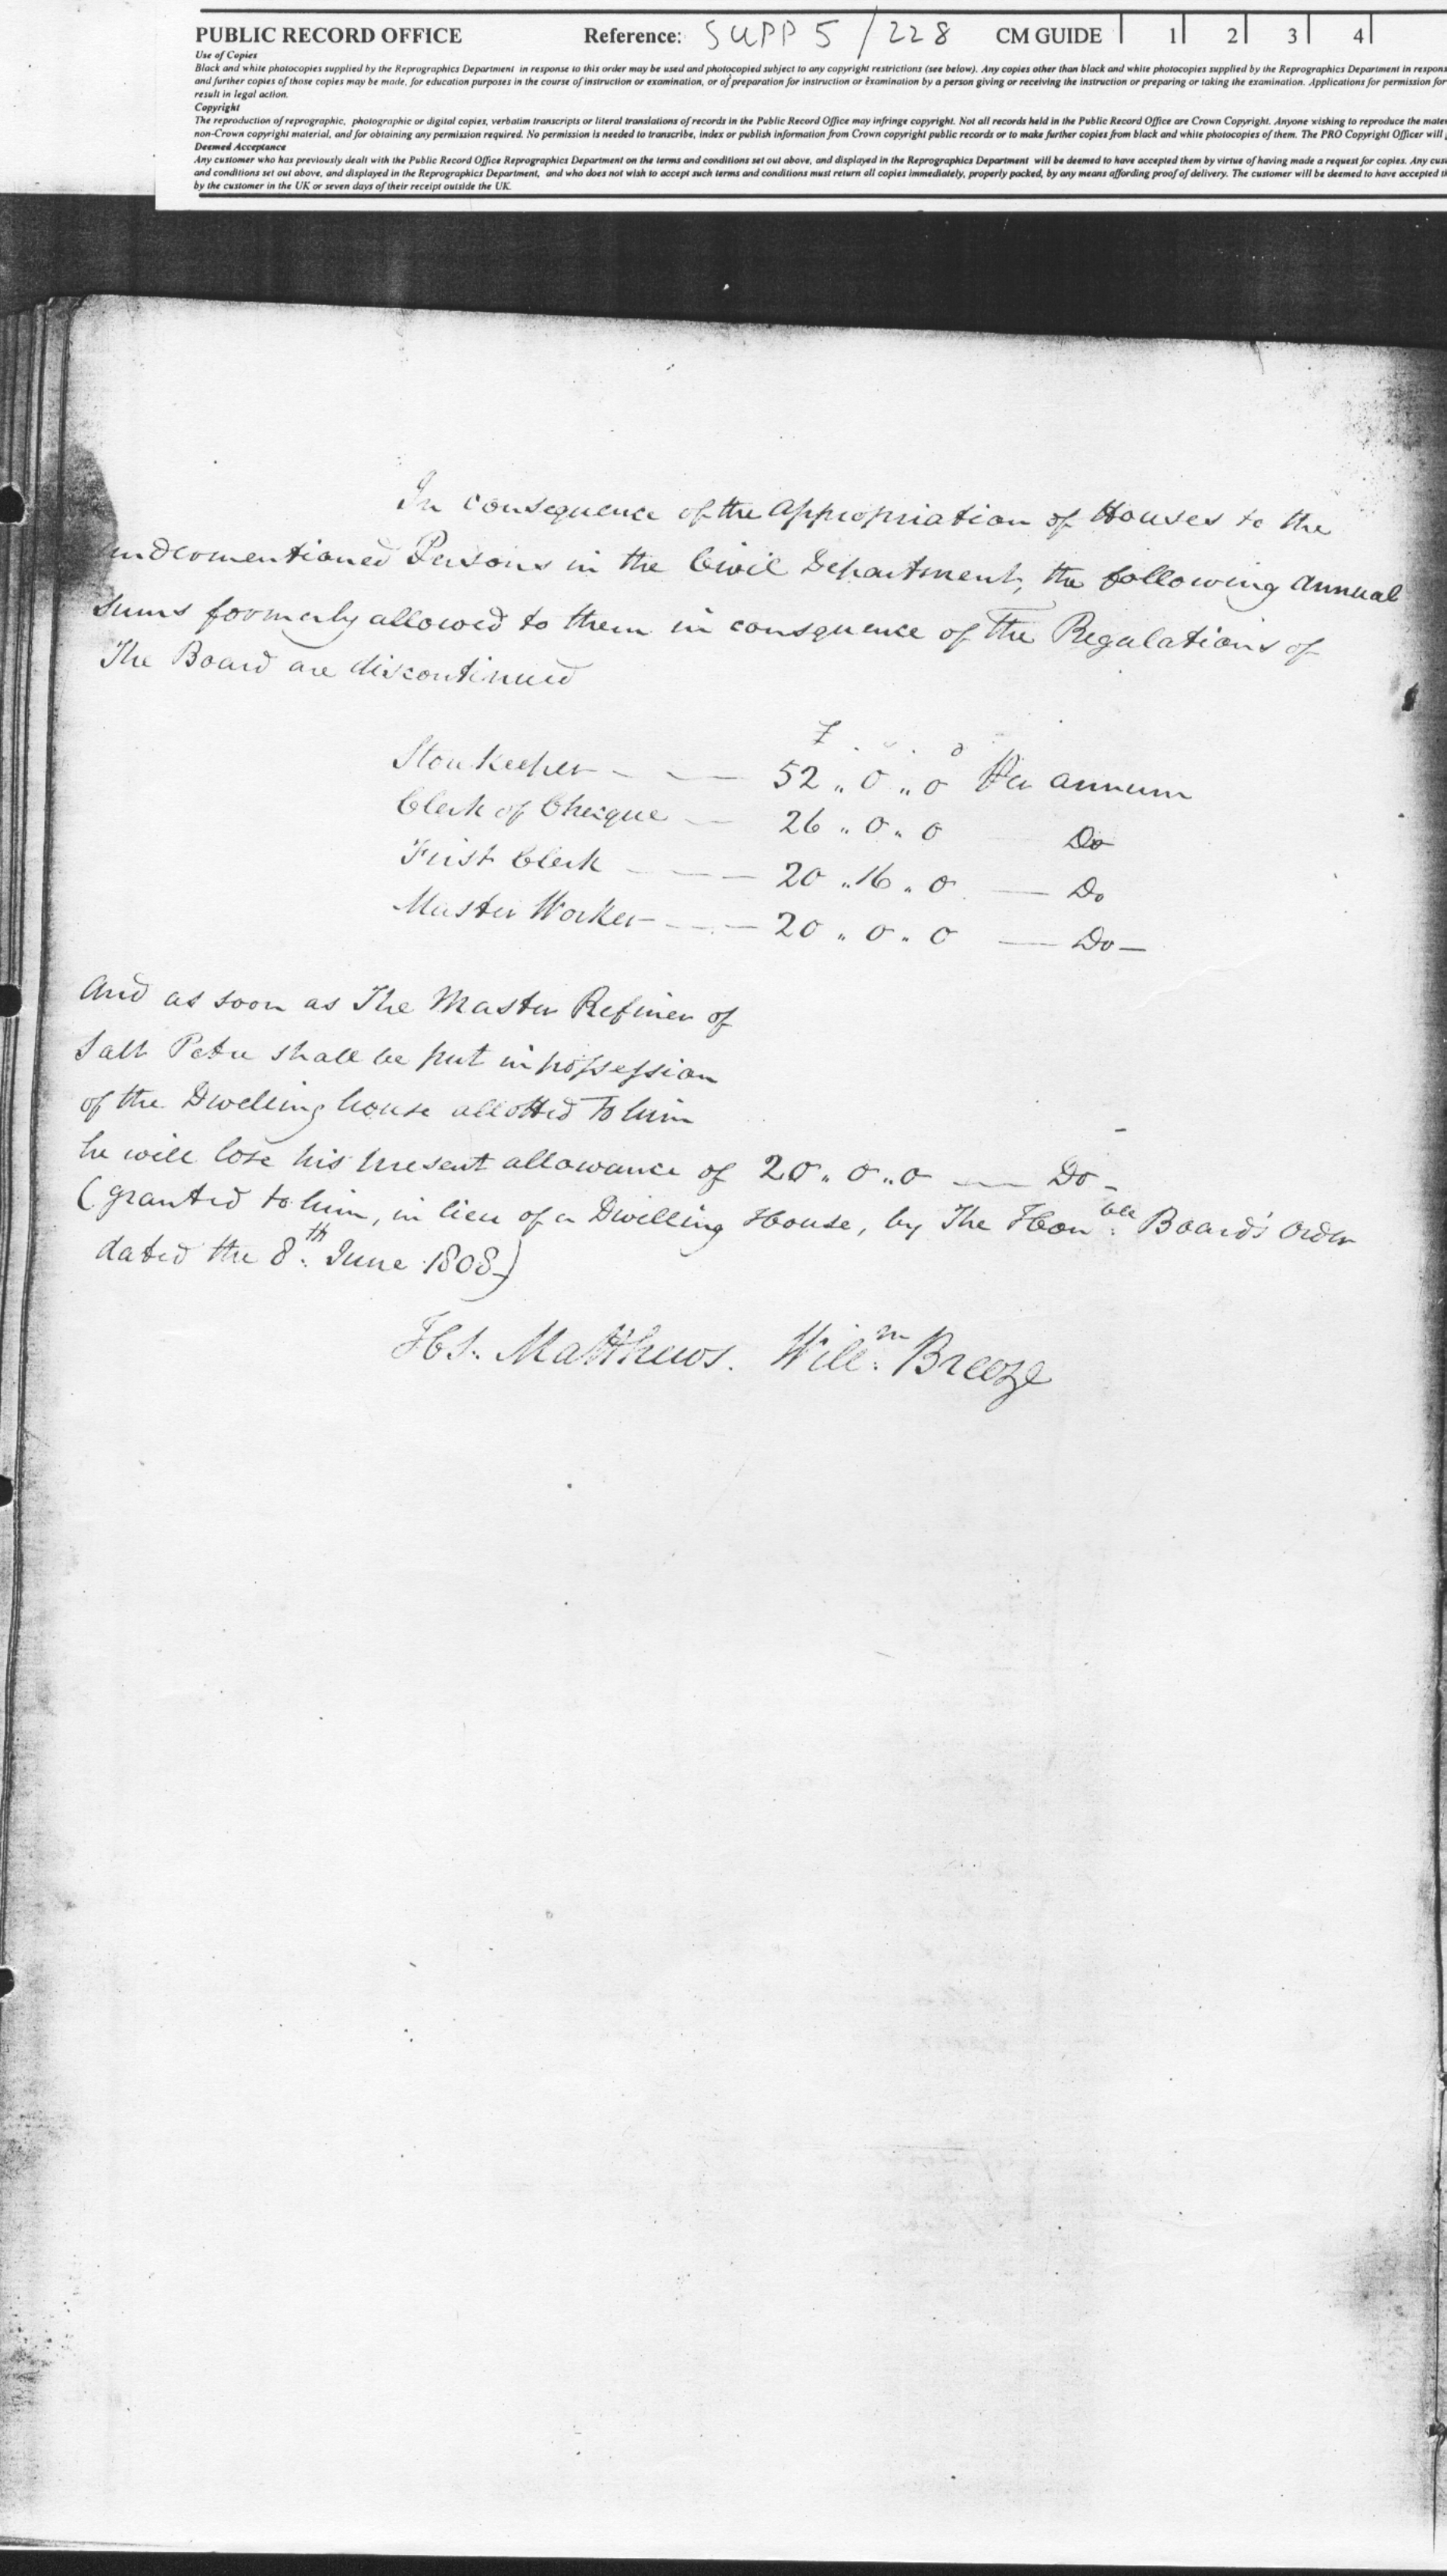 PUBLIC RECORD OFFICE Reference: SUPP 5 / 228 CM GUIDE 1 2 3 4
Use of Copies
Black and white photocopies supplied by the Reprographics Department in response to this order may be used and photocopied subject to any copyright restrictions (see below). Any copies other than black and white photocopies supplied by the Reprographics Department in respons
and further copies of those copies may be made, for education purposes in the course of instruction or examination, or of preparation for instruction or examination by a person giving or receiving the instruction or preparing or taking the examination. Applications for permission for
result in legal action.
Copyright
The reproduction of reprographic, photographic or digital copies, verbatim transcripts or literal translations of records in the Public Record Office may infringe copyright. Not all records held in the Public Record Office are Crown Copyright. Anyone wishing to reproduce the mate
non-Crown copyright material, and for obtaining any permission required. No permission is needed to transcribe, index or publish information from Crown copyright public records or to make further copies from black and white photocopies of them. The PRO Copyright Officer will
Deemed Acceptance
Any customer who has previously dealt with the Public Record Office Reprographics Department on the terms and conditions set out above, and displayed in the Reprographics Department will be deemed to have accepted them by virtue of having made a request for copies. Any cus
and conditions set out above, and displayed in the Reprographics Department, and who does not wish to accept such terms and conditions must return all copies immediately, properly packed, by any means affording proof of delivery. The customer will be deemed to have accepted th
by the customer in the UK or seven days of their receipt outside the UK.
In consequence of the appropriation of Houses to the
undermentioned Persons in the Civil Department, the following annual
sums formerly allowed to them in consquence of The Regulations of
The Board are discontinued
£ s d
Storekeeper - - - 52 " 0 " 0 Per annum
Clerk of Cheque - 26 " 0 " 0 Do
First Clerk - - - 20 " 16 " 0 - Do
Master Worker - - - 20 " 0 " 0 - Do -
And as soon as The Master Refiner of
Salt Petre shall be put in possession
of the Dwelling house allotted to him
he will lose his present allowance of 20 " 0 " 0 - Do -
(granted to him, in lieu of a Dwelling House, by The Hon:ble Board's order
dated the 8th: June 1808)
Hs. Matthews. Will:m Breeze